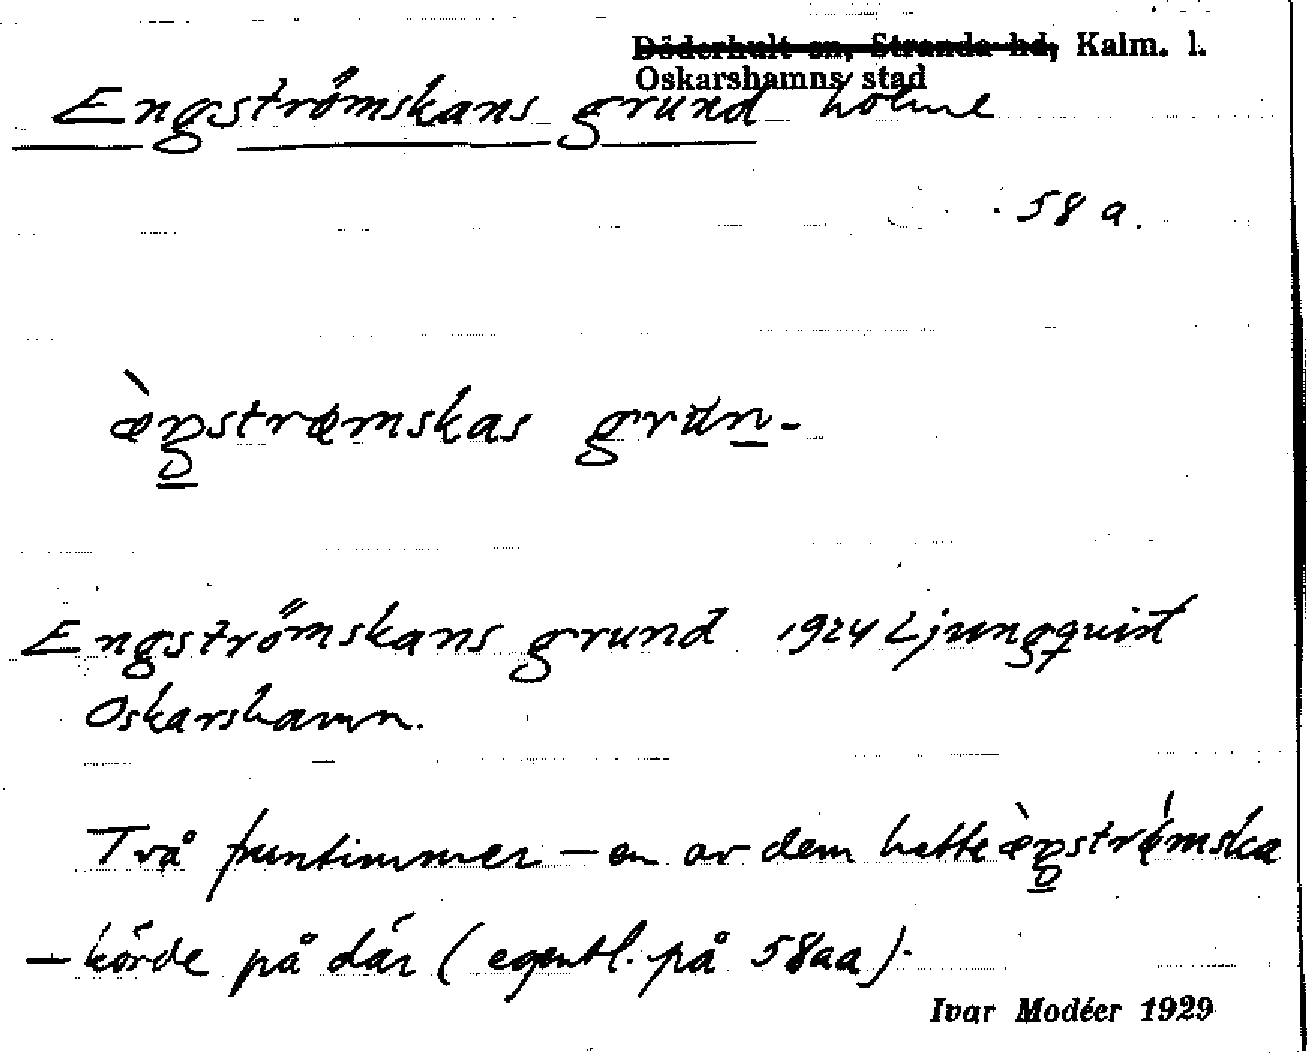 Döderhult sn, Stranda hd, Kalm. l.
Oskarshamns stad
Engströmskans grund holme
58 a.
æ̀ŋstrœmskas grun-
Engströmskans grund 1924 Ljungquist
Oskarshamn.
Två fruntimmer – en av dem hette æ̀ŋströmska
– körde på där (egentl. på 58aa).
Ivar Modéer 1929